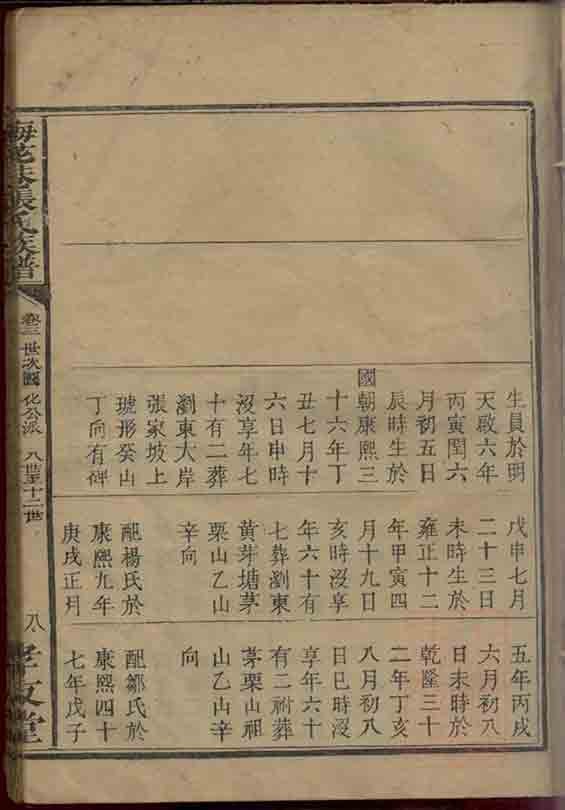 生員於明
天啟六年
丙寅閏六
月初五日
辰時生於
國朝康熙三
十六年丁
丑七月十
六日申時
沒享年七
十有二葬
瀏東大岸
張家坡上
琥形癸山
丁向有碑
戊申七月
二十三日
未時生於
雍正十二
年甲寅四
月十九日
亥時沒享
年六十有
七葬瀏東
黄芽塘茅
栗山乙山
辛向
配楊氏於
康熙九年
庚戌正月
五年丙戌
六月初八
日未時於
乾隆三十
二年丁亥
八月初八
日巳時沒
享年六十
有二祔葬
茅栗山祖
山乙山辛
向
配鄒氏於
康熙四十
七年戊子
梅花巷張氏族譜
卷三 世次圖 化公派 八世至十二世
八
孝友堂